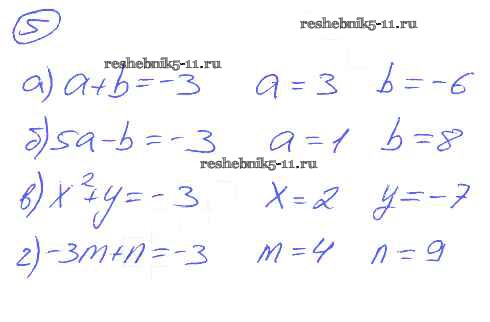 5
reshebnik5-11.ru
reshebnik5-11.ru
а) a+b=-3 a=3 b=-6
б) 5a-b=-3 a=1 b=8
reshebnik5-11.ru
в) x²+y=-3 x=2 y=-7
г) -3m+n=-3 m=4 n=9